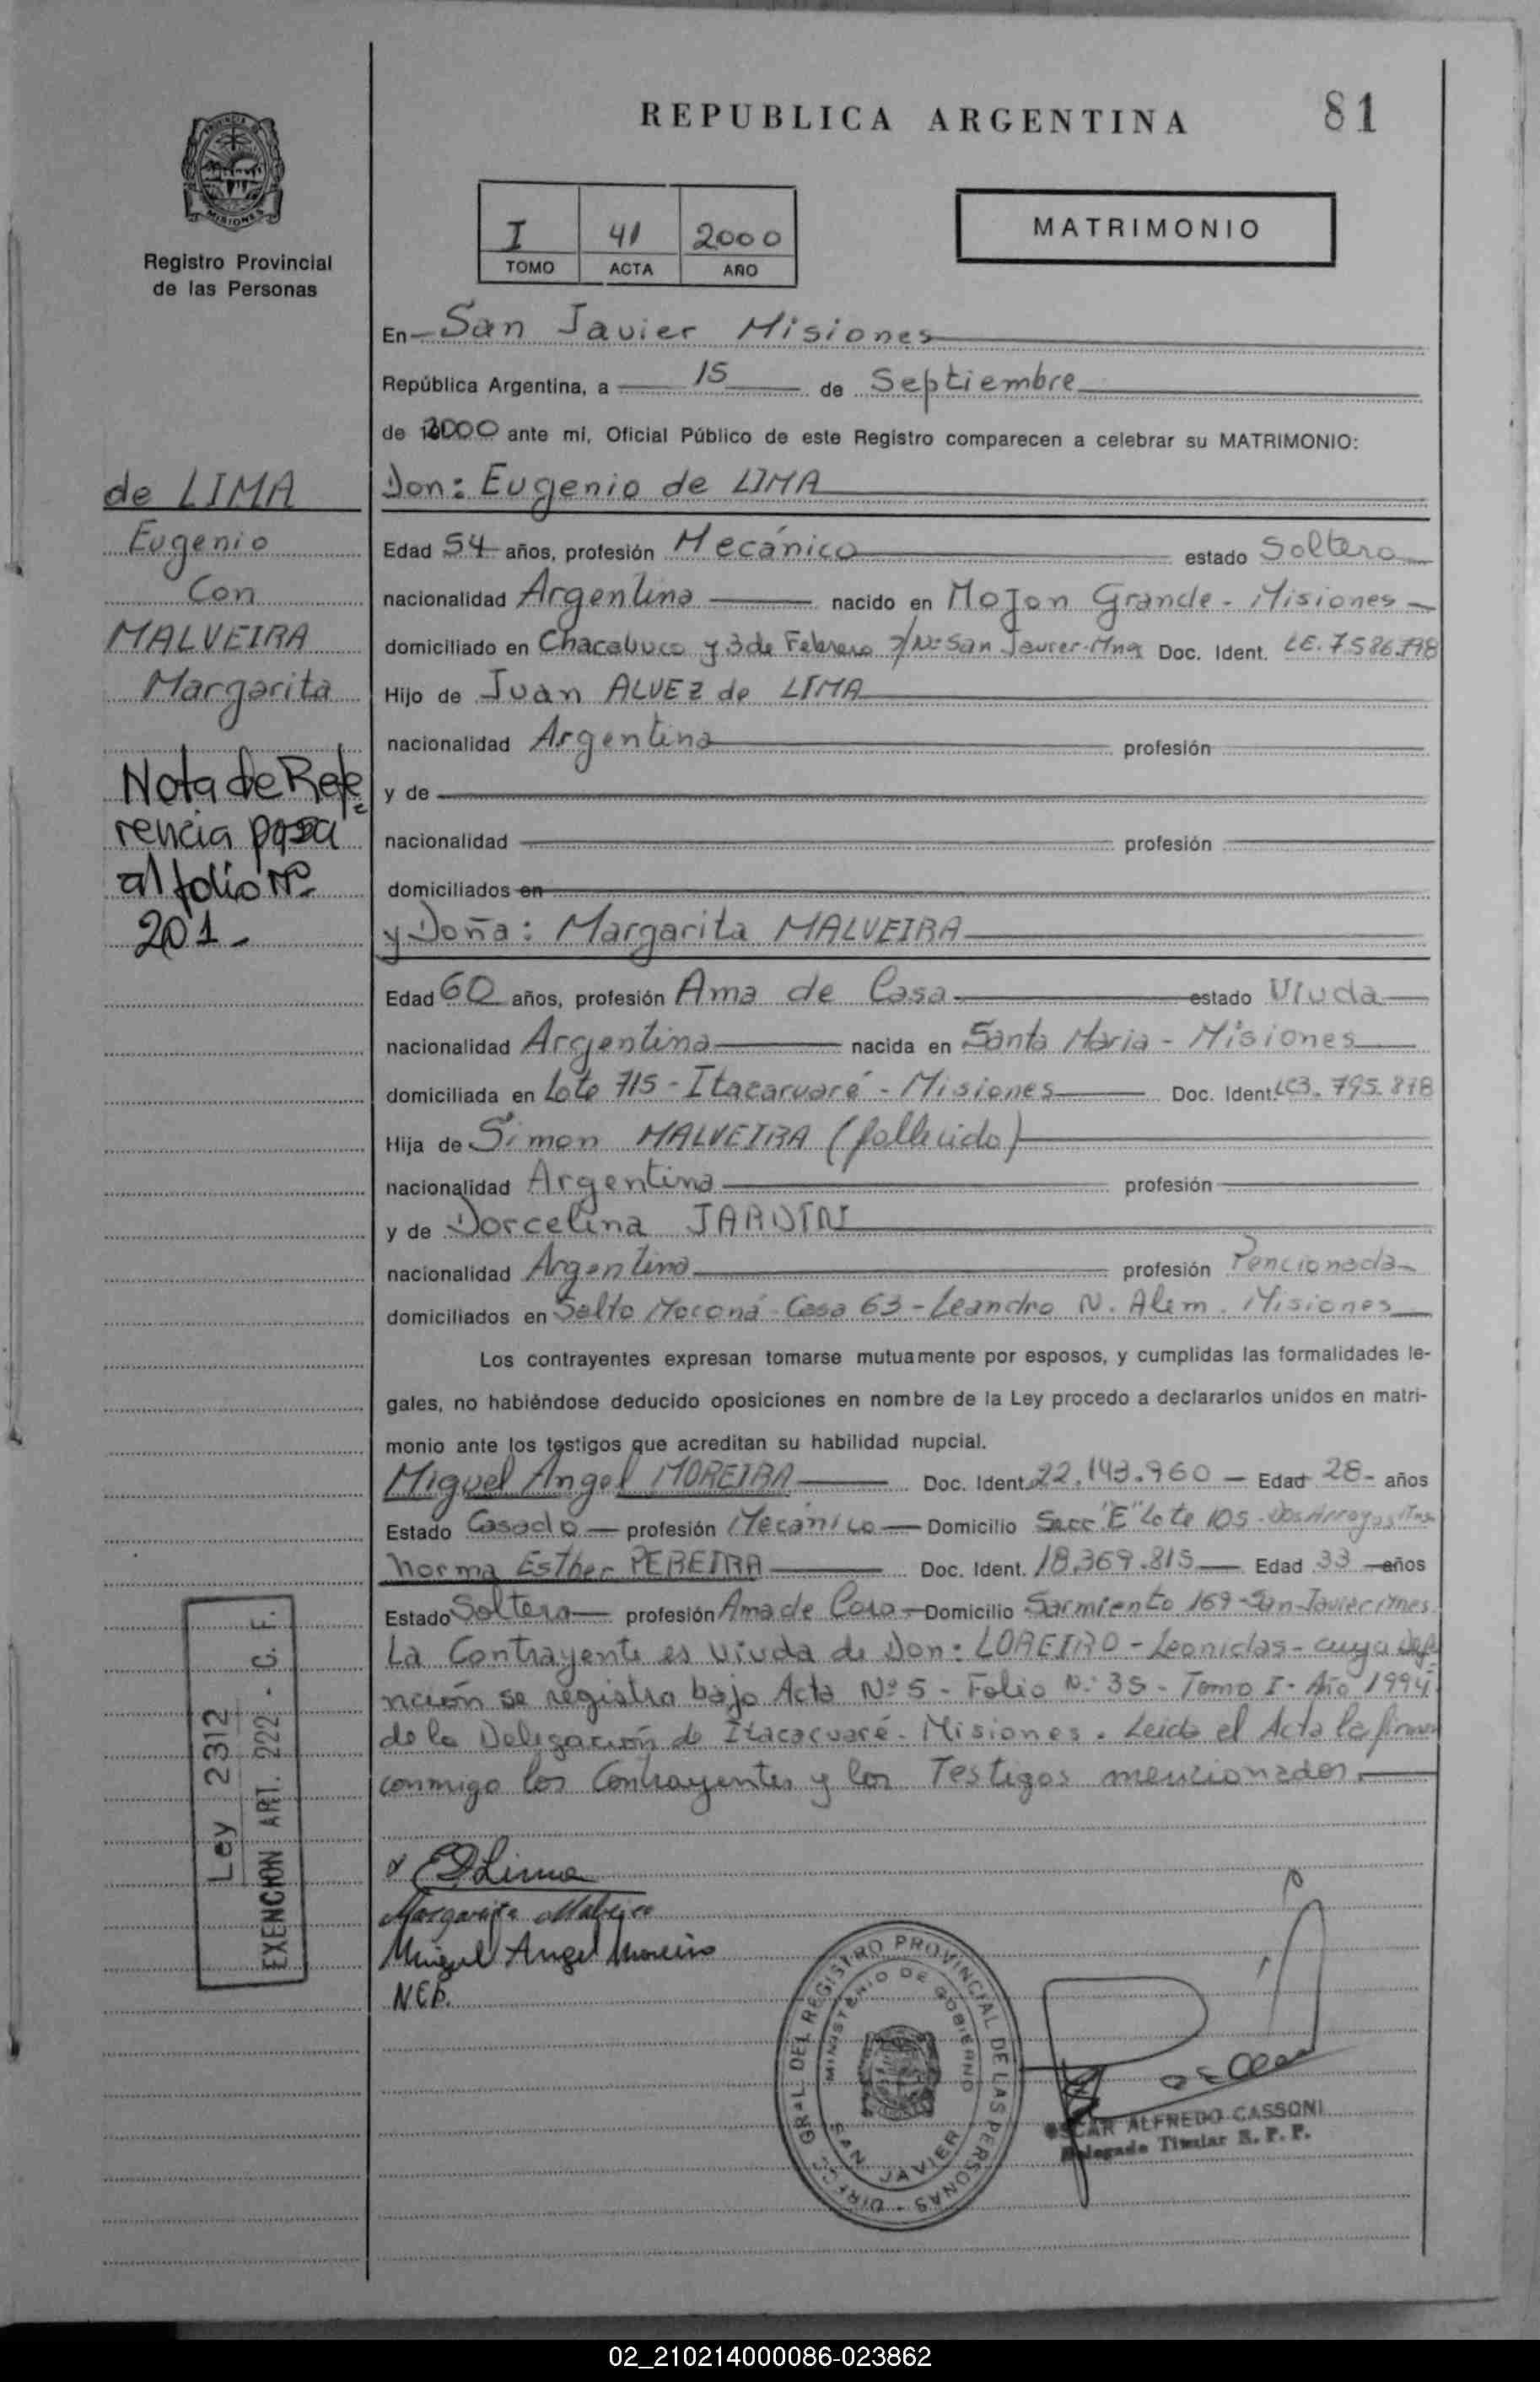 REPUBLICA ARGENTINA
81
PROVINCIA DE
MISIONES
Registro Provincial
de las Personas
I 41 2000
TOMO ACTA AÑO
MATRIMONIO
En San Javier Misiones
República Argentina, a 15 de Septiembre
de 2000 ante mi, Oficial Público de este Registro comparecen a celebrar su MATRIMONIO:
de LIMA
Eugenio
Con
MALVEIRA
Margarita
Nota de Refe
rencia pasa
al folio Nº
201-
Don: Eugenio de LIMA
Edad 54 años, profesión Mecánico estado Soltero
nacionalidad Argentina nacido en Mojon Grande - Misiones
domiciliado en Chacabuco y 3 de Febrero S/Nº San Javier-Mnes Doc. Ident. LE. 7.586.798
Hijo de Juan ALVEZ de LIMA
nacionalidad Argentina profesión
y de
nacionalidad profesión
domiciliados en
y Doña: Margarita MALVEIRA
Edad 60 años, profesión Ama de Casa estado Viuda
nacionalidad Argentina nacida en Santa Maria - Misiones
domiciliada en Lote 715 - Itacaruaré - Misiones Doc. Ident. LC3.795.818
Hija de Simon MALVEIRA (fallecido)
nacionalidad Argentina profesión
y de Dorcelina JARDIN
nacionalidad Argentina profesión Pencionada
domiciliados en Salto Moconá - Casa 63 - Leandro N. Alem. Misiones
Los contrayentes expresan tomarse mutuamente por esposos, y cumplidas las formalidades le-
gales, no habiéndose deducido oposiciones en nombre de la Ley procedo a declararlos unidos en matri-
monio ante los testigos que acreditan su habilidad nupcial.
Miguel Angel MOREIRA Doc. Ident. 22.143.960 - Edad 28 - años
Estado Casado profesión Mecánico Domicilio Secc "E" Lote 105 - Dos Arroyos
Norma Esther PEREIRA Doc. Ident. 18.369.815 Edad 33 años
Estado Soltera profesión Ama de Casa Domicilio Sarmiento 169 - San Javier Mnes.
La Contrayente es viuda de Don: LOREIRO - Leonidas - cuya defu
nción se registra bajo Acta Nº 5 - Folio Nº 35 - Tomo I - Año 1994
de la Delegación de Itacaruaré - Misiones. Leida el Acta la firman
conmigo los Contrayentes y los Testigos mencionados.
Ley 2312
EXENCION ART. 222 - C. F.
E D Lima
Margarita Malveira
Miguel Angel Moreira
N.E.P.
DIRECC. GRAL. DEL REGISTRO PROVINCIAL DE LAS PERSONAS
MINISTERIO DE GOBIERNO
SAN JAVIER
OSCAR ALFREDO CASSONI
Delegado Titular R. P. P.
02_210214000086-023862